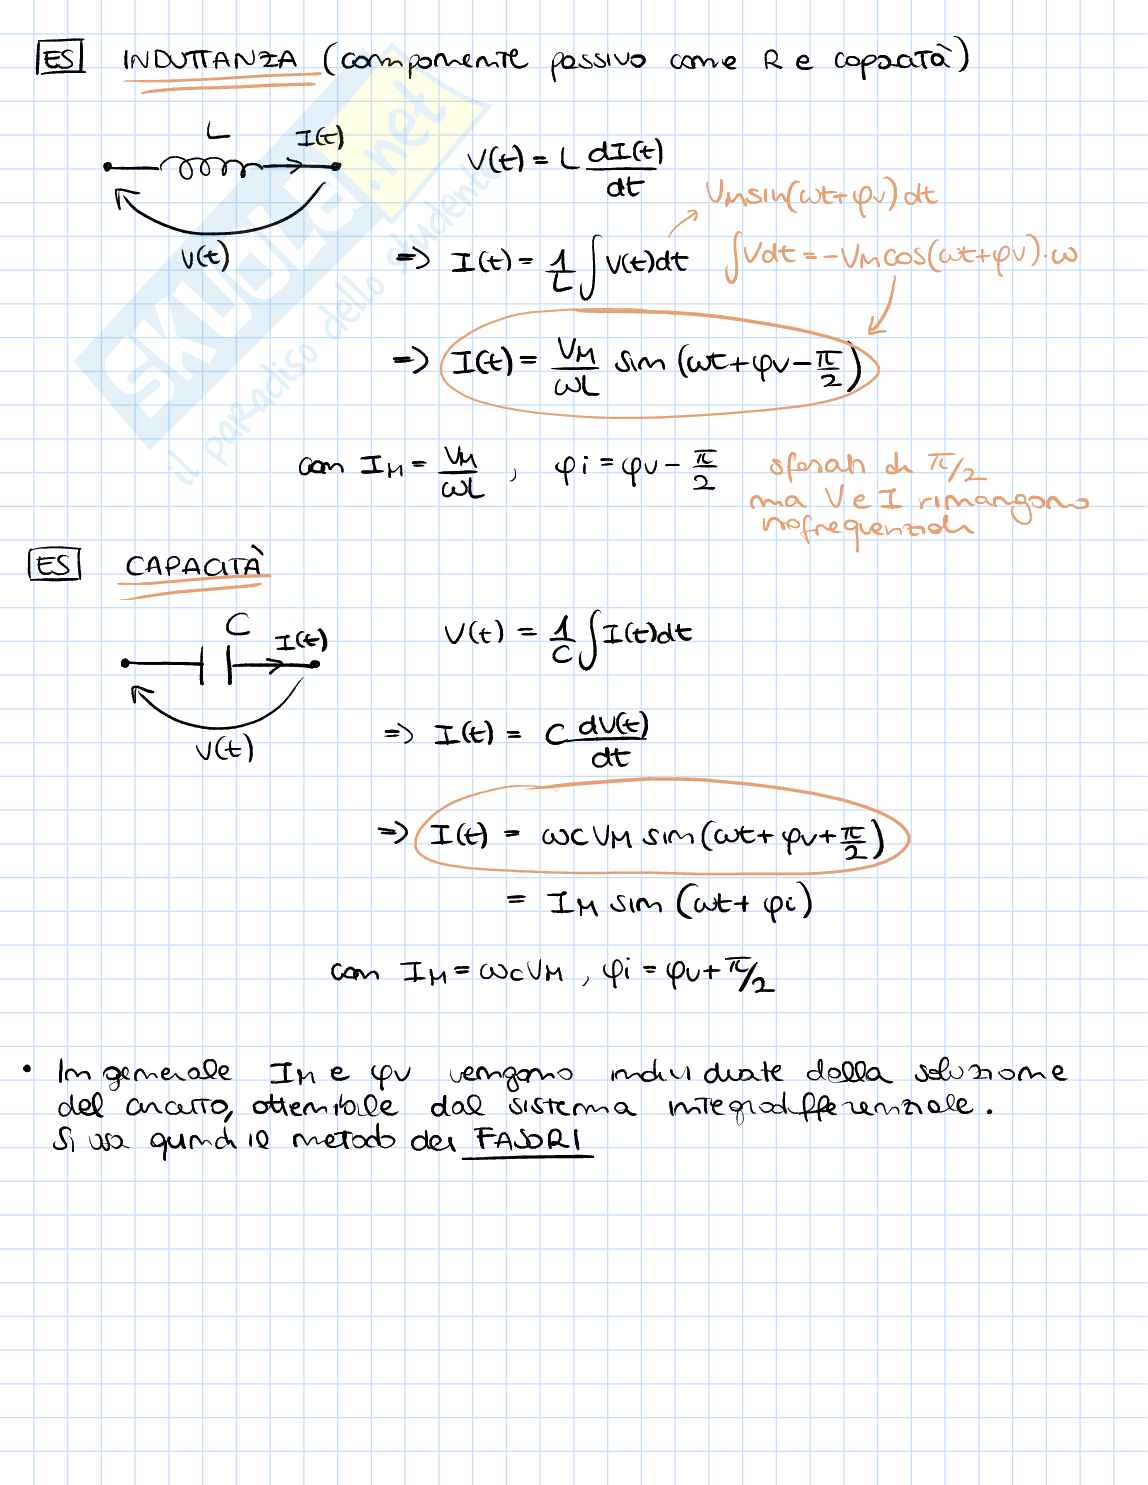 ES INDUTTANZA (componente passivo come R e capacità)
L I(t)
V(t)
V(t) = L dI(t)/dt
Vm sin(ωt+φv) dt
=> I(t) = 1/L ∫ V(t)dt
∫Vdt = -VM cos(ωt+φv)·ω
=> I(t) = VM/ωL sin (ωt+φv-π/2)
con IM = VM/ωL , φi = φv - π/2
sfasati di π/2
ma V e I rimangono
isofrequenziali
ES CAPACITÀ
C I(t)
V(t)
V(t) = 1/C ∫ I(t)dt
=> I(t) = C dV(t)/dt
=> I(t) = ωC VM sin(ωt+ φv+π/2)
= IM sin (ωt+ φi)
con IM = ωC VM , φi = φv+π/2
• In generale IM e φv vengono individuate dalla soluzione
del circuito, ottenibile dal sistema integrodifferenziale.
Si usa quindi il metodo dei FASORI
SKUOLA.net
il paradiso dello studente